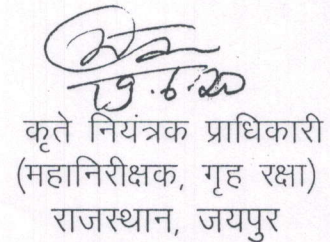 19.6.20
कृते नियंत्रक प्राधिकारी
(महानिरीक्षक, गृह रक्षा)
राजस्थान, जयपुर